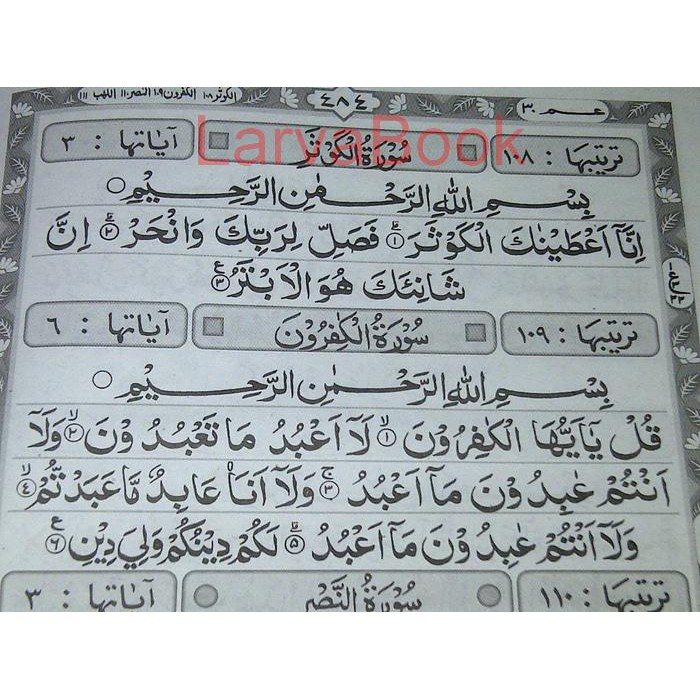 الكوثر ١٠٨ الكفرون ١٠٩ النصر ١١٠ اللهب ١١١
٤٨٤
عمّ ٣٠
LaryaBook
ترتيبها : ١٠٨ سُوْرَةُ الْكَوْثَرِ آياتها : ٣
بِسْمِ اللهِ الرَّحْمٰنِ الرَّحِيْمِ
اِنَّآ اَعْطَيْنٰكَ الْكَوْثَرَ ١ فَصَلِّ لِرَبِّكَ وَانْحَرْ ٢ اِنَّ
شَانِئَكَ هُوَ الْاَبْتَرُ ٣
ترتيبها : ١٠٩ سُوْرَةُ الْكٰفِرُوْنَ آياتها : ٦
بِسْمِ اللهِ الرَّحْمٰنِ الرَّحِيْمِ
قُلْ يٰٓاَيُّهَا الْكٰفِرُوْنَ ١ لَآ اَعْبُدُ مَا تَعْبُدُوْنَ ٢ وَلَآ
اَنْتُمْ عٰبِدُوْنَ مَآ اَعْبُدُ ٣ وَلَآ اَنَا۠ عَابِدٌ مَّا عَبَدْتُّمْ ٤
وَلَآ اَنْتُمْ عٰبِدُوْنَ مَآ اَعْبُدُ ٥ لَكُمْ دِيْنُكُمْ وَلِيَ دِيْنِ ٦
ترتيبها : ١١٠ سُوْرَةُ النَّصْرِ آياتها : ٣